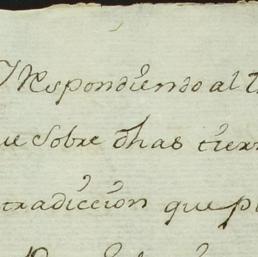 Respondiendo al
que sobre dhas tierr
tradiccion que p